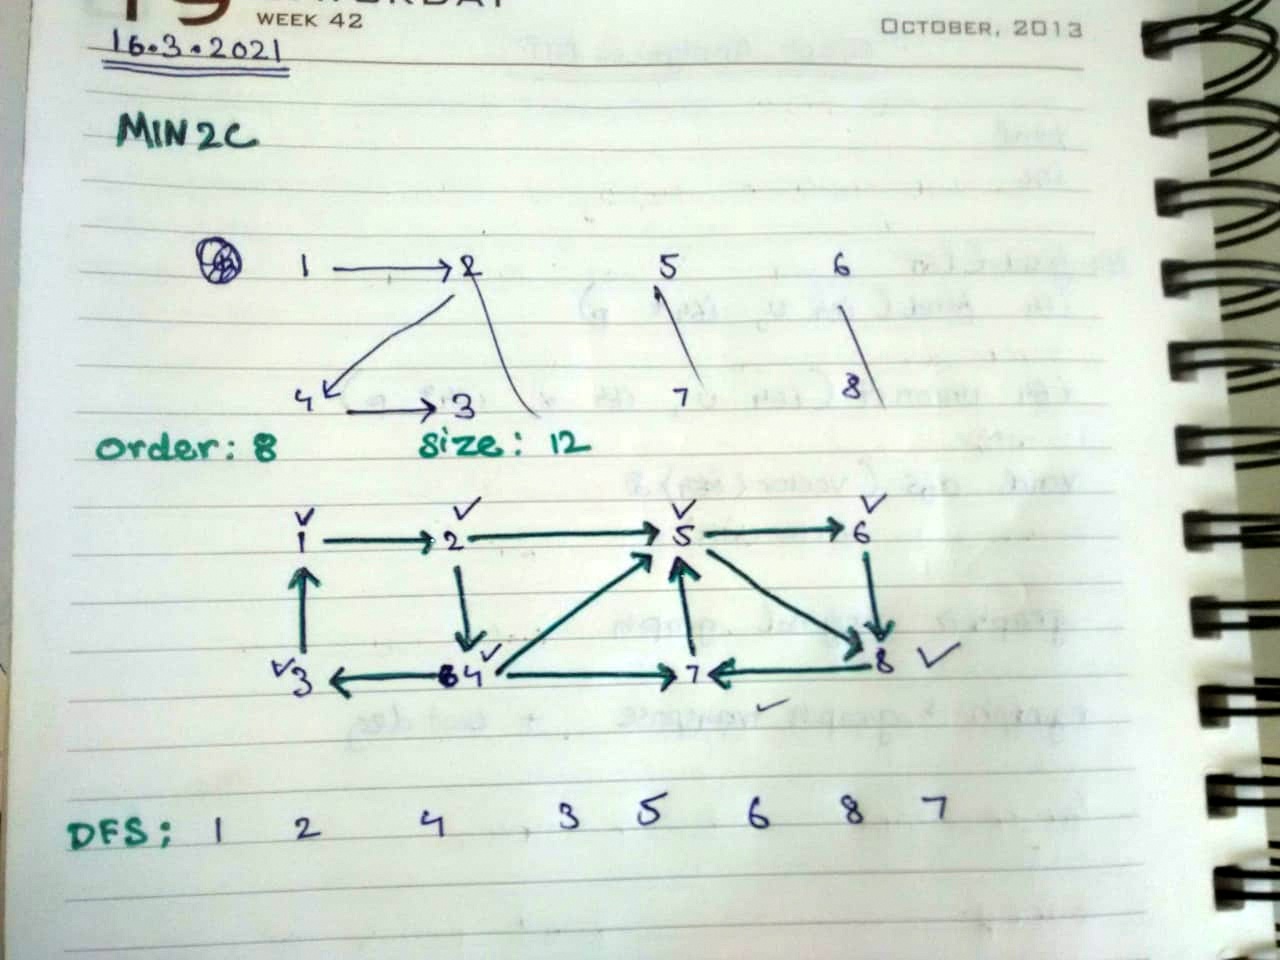 WEEK 42
OCTOBER, 2013
16.3.2021
MIN2C
1 2 5 6
4 3 7 8
order: 8 size: 12
1 2 5 6
3 4 7 8
DFS; 1 2 4 3 5 6 8 7